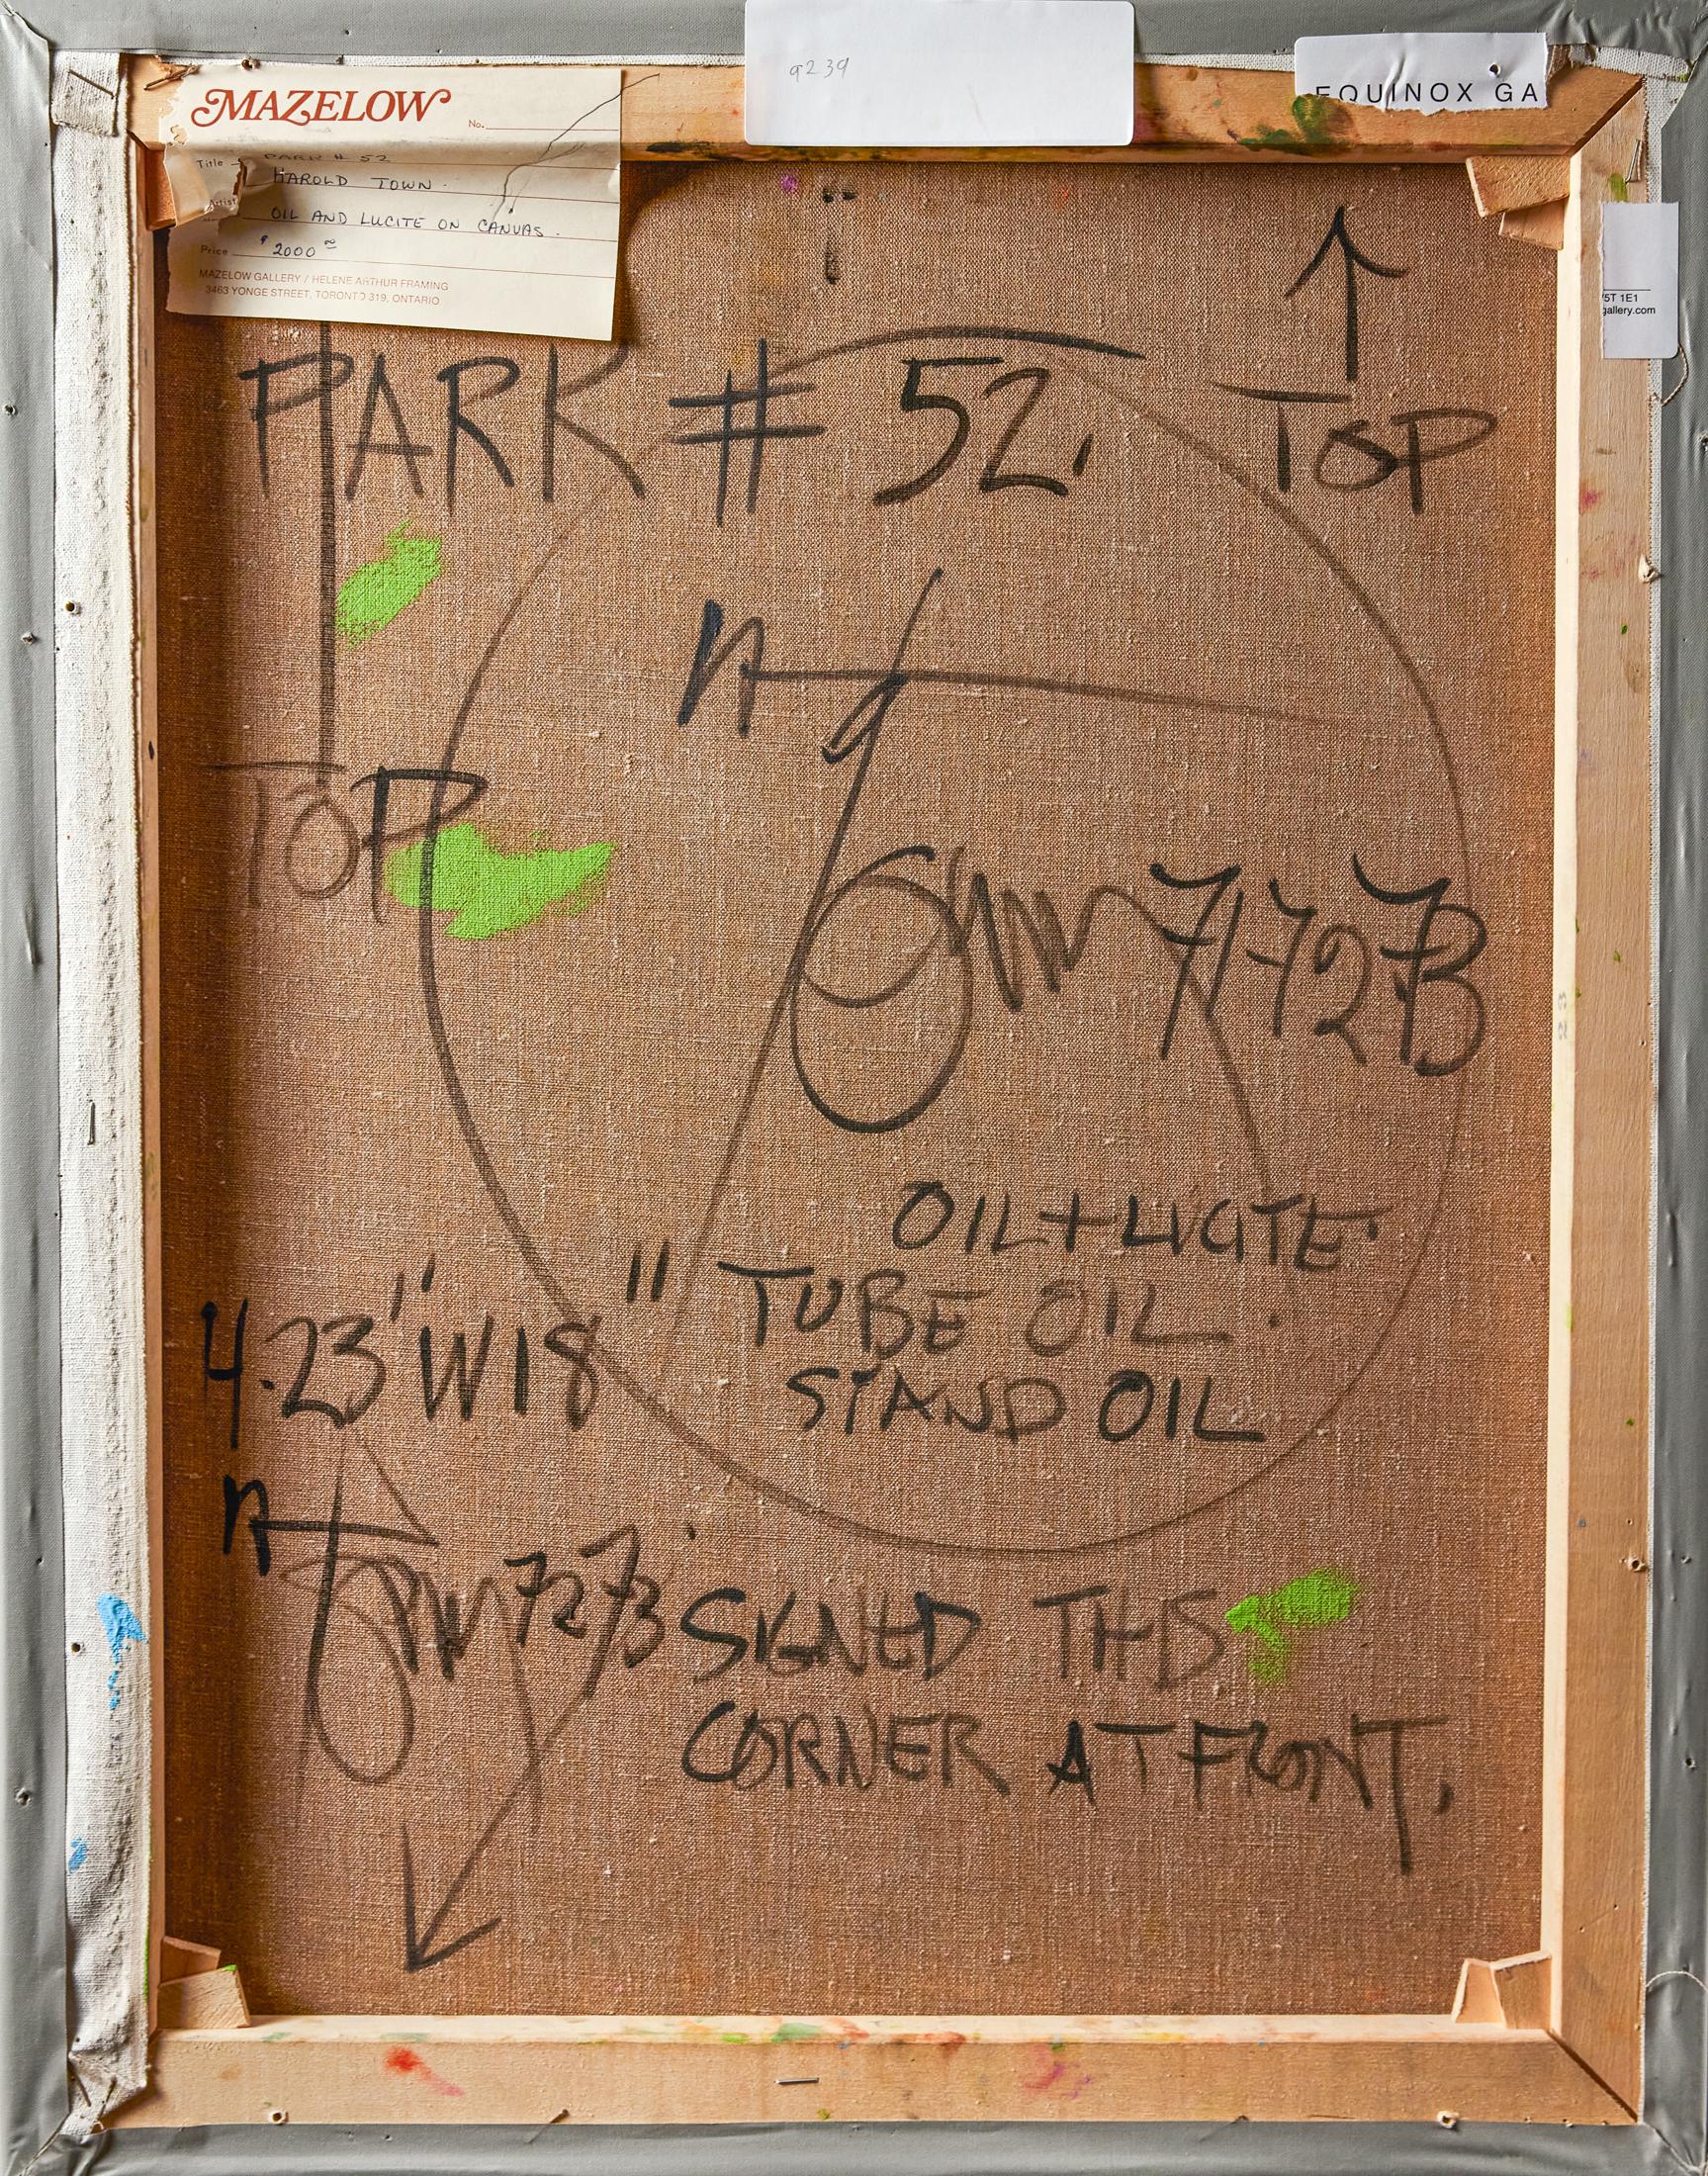 9239
EQUINOX GA
MAZELOW
No.
Title PARK # 52
Artist HAROLD TOWN
OIL AND LUCITE ON CANVAS.
Price $2000
MAZELOW GALLERY / HELENE ARTHUR FRAMING
3463 YONGE STREET, TORONTO 319, ONTARIO
5T 1E1
gallery.com
PARK # 52.
TOP
TOP
71-72 73
OIL + LUCITE
TUBE OIL
STAND OIL
H.23" W18"
72 73
SIGNED THIS
CORNER AT FRONT.